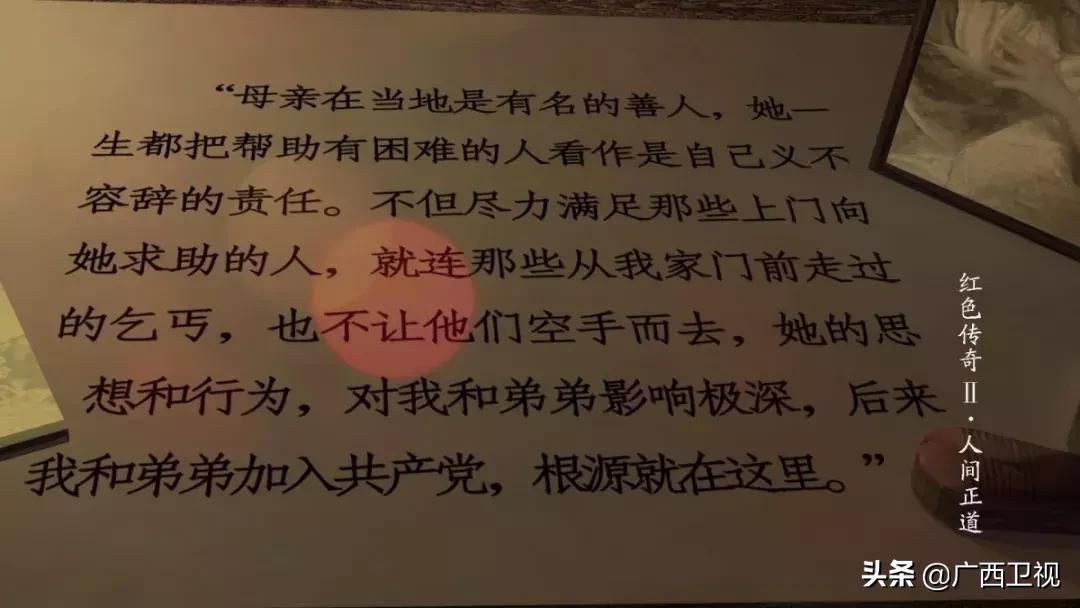 “母亲在当地是有名的善人，她一
生都把帮助有困难的人看作是自己义不
容辞的责任。不但尽力满足那些上门向
她求助的人，就连那些从我家门前走过
的乞丐，也不让他们空手而去，她的思
想和行为，对我和弟弟影响极深，后来
我和弟弟加入共产党，根源就在这里。”
红色传奇Ⅱ·人间正道
头条 @广西卫视